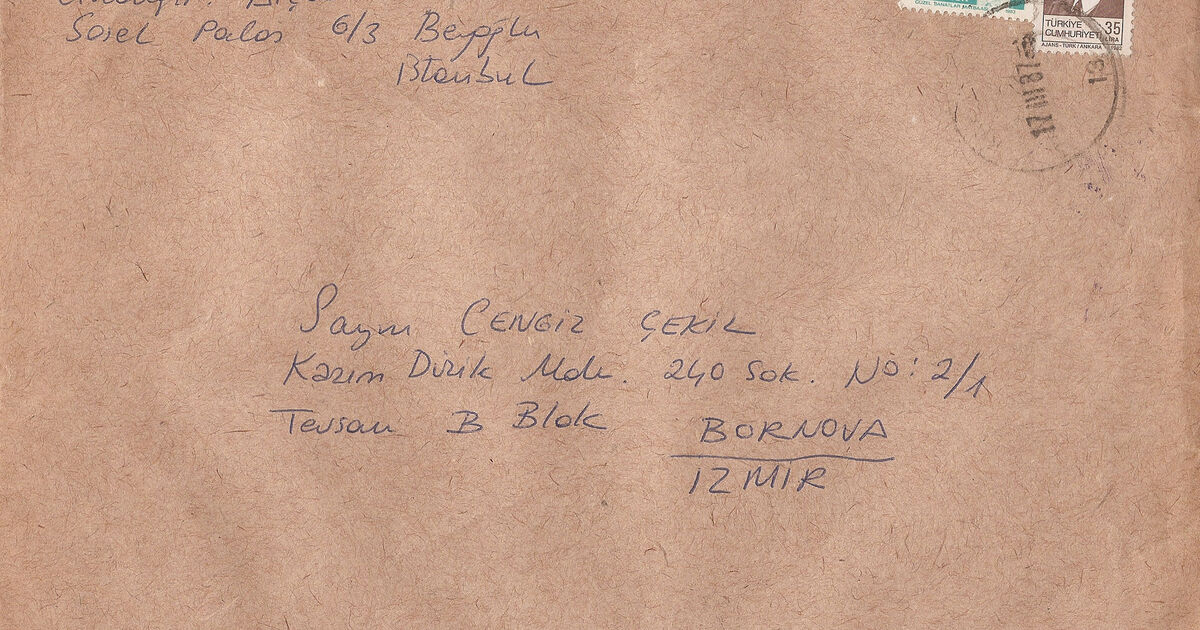 Sosel Palas 6/3 Beyoğlu
istanbul
GÜZEL SANATLAR MATBAASI
1983
TÜRKİYE 35
CUMHURİYETİ LİRA
AJANS-TÜRK/ANKARA
17 III 87
Sayın CENGİZ ÇEKİL
Kazım Dirik Mah. 240 Sok. NO: 2/1
Tevsan B Blok BORNOVA
IZMIR